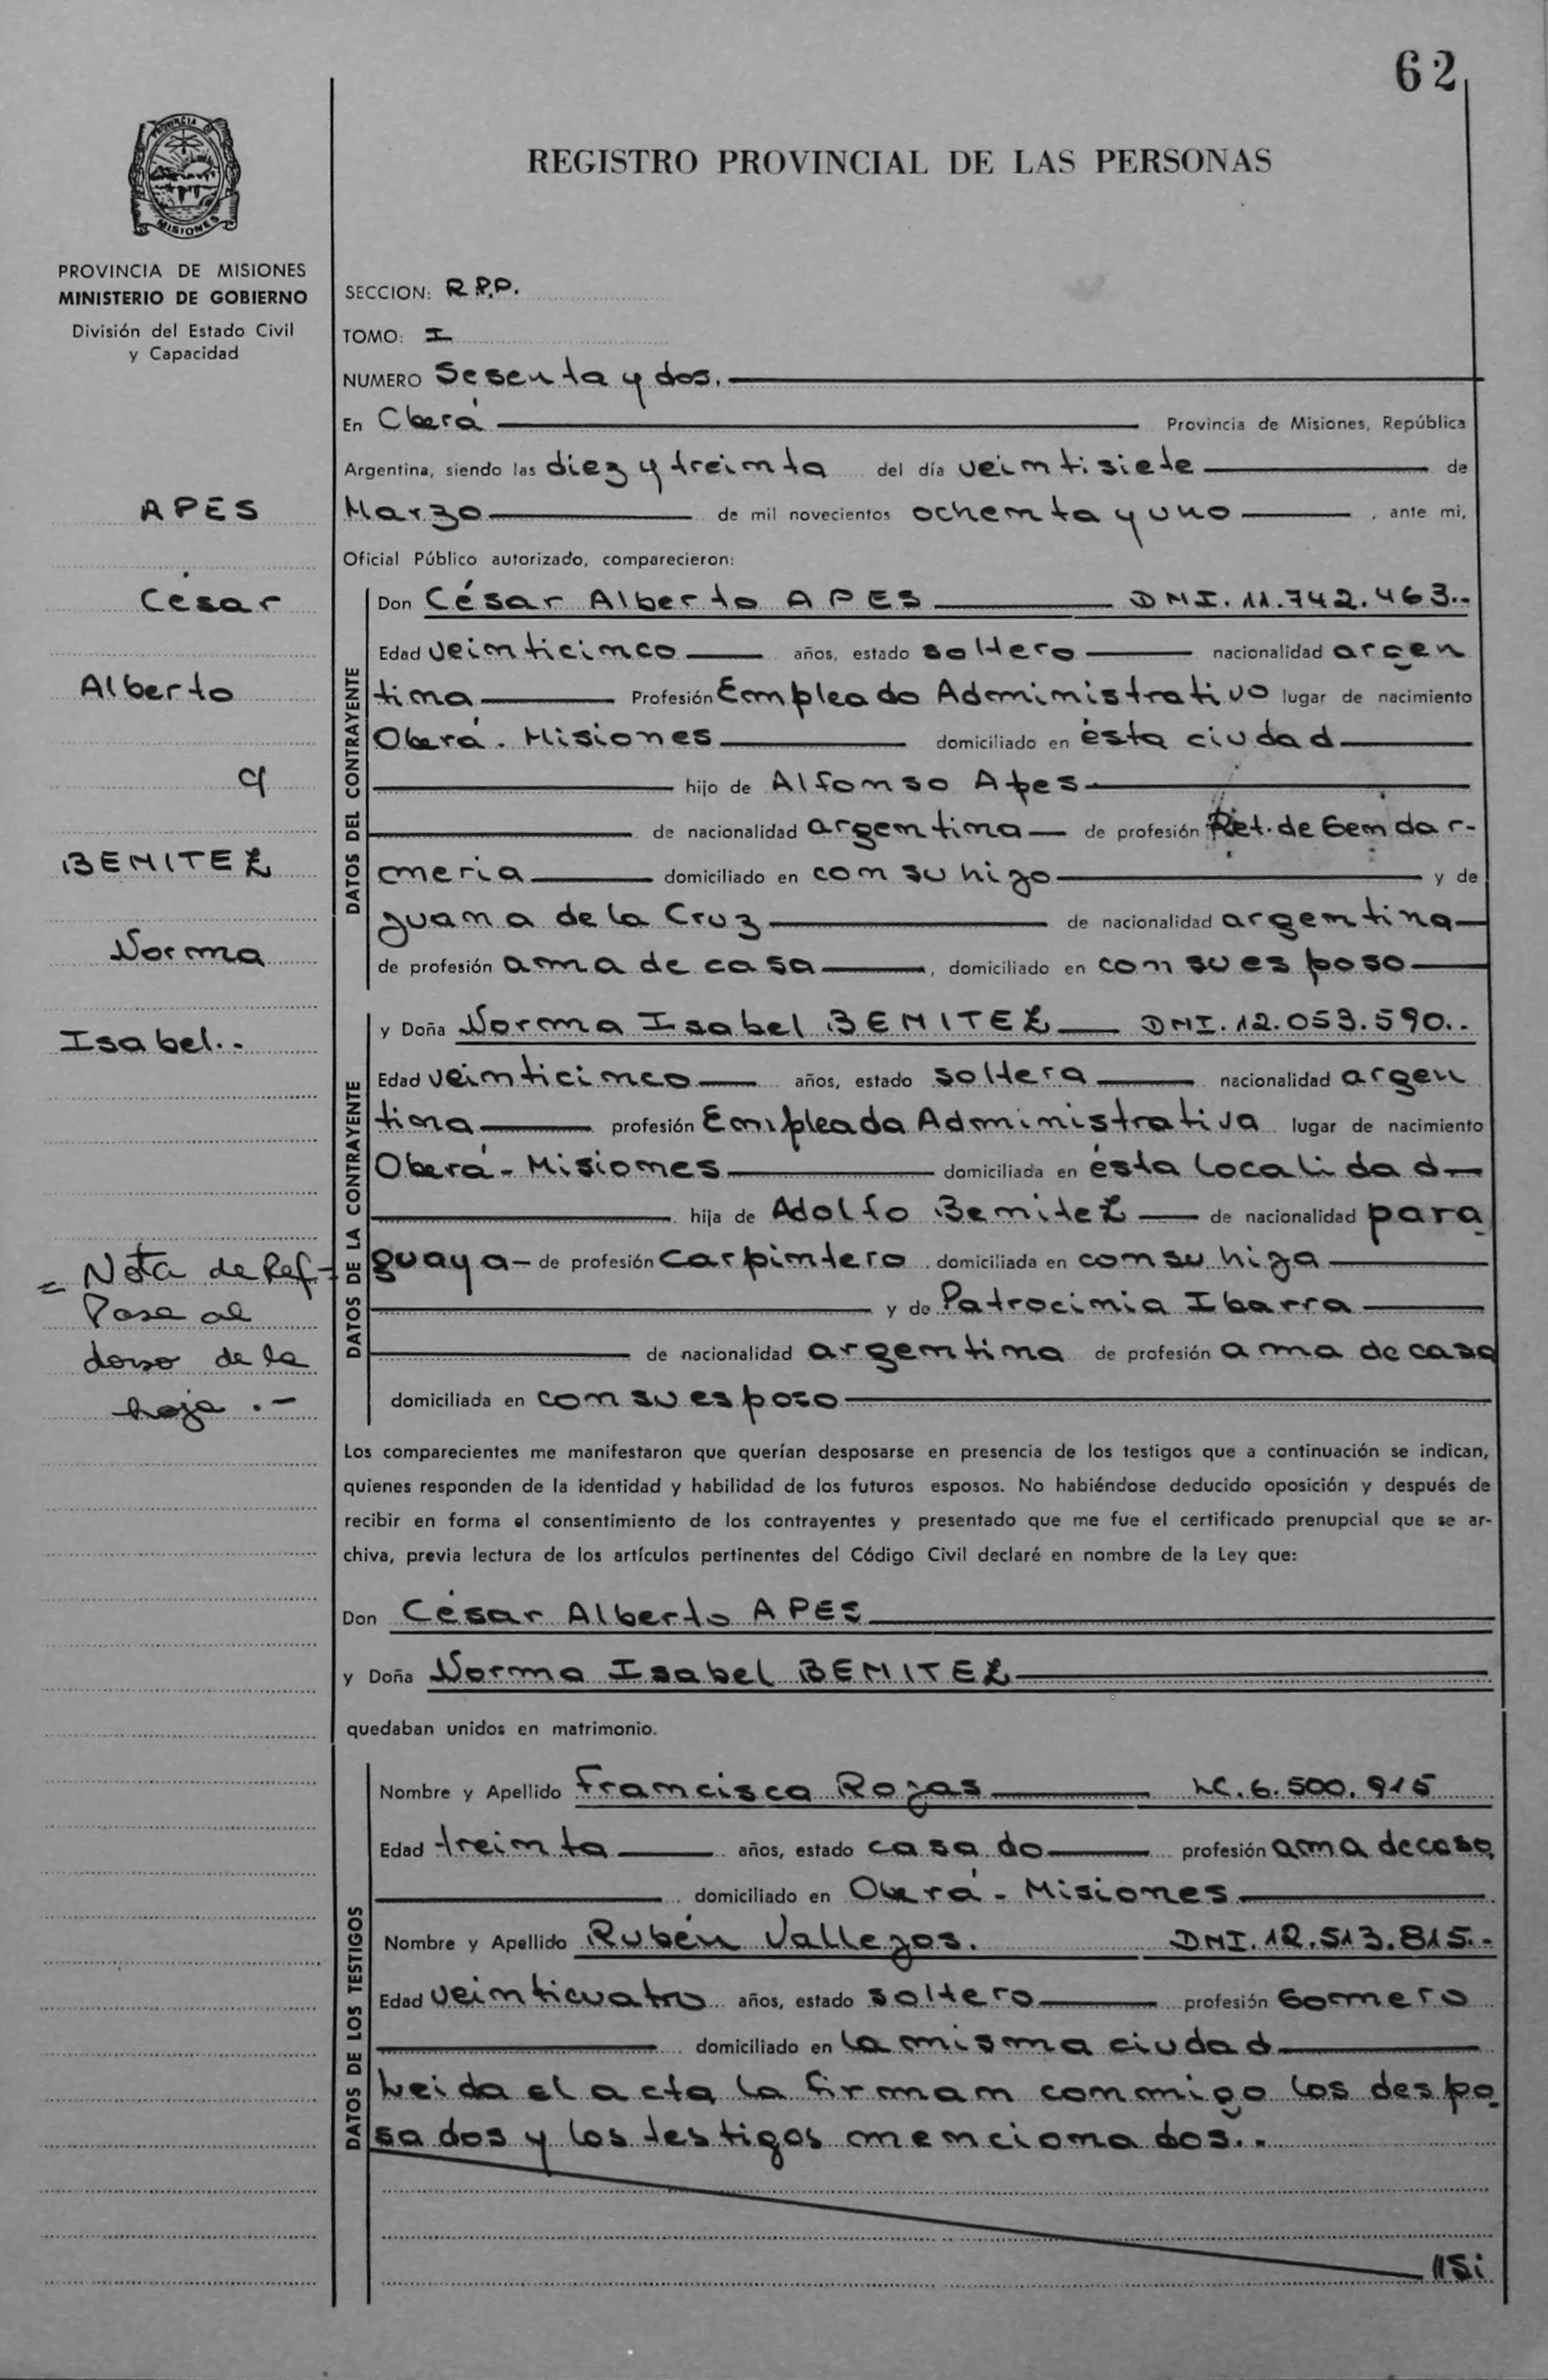 62
REGISTRO PROVINCIAL DE LAS PERSONAS
PROVINCIA DE MISIONES
PROVINCIA DE MISIONES
MINISTERIO DE GOBIERNO
División del Estado Civil
y Capacidad
APES
César
Alberto
c/
BENITEZ
Norma
Isabel.-
= Nota de Ref-
Pasa al
dorso de la
hoja .-
SECCION: R.P.P.
TOMO: I
NUMERO Sesenta y dos.
En Oberá Provincia de Misiones, República
Argentina, siendo las diez y treinta del día veintisiete de
Marzo de mil novecientos ochenta y uno, ante mi,
Oficial Público autorizado, comparecieron:
DATOS DEL CONTRAYENTE
Don César Alberto APES DNI. 11.742.463.-
Edad veinticinco años, estado soltero nacionalidad argen
tina Profesión Empleado Administrativo lugar de nacimiento
Oberá. Misiones domiciliado en ésta ciudad
hijo de Alfonso Apes
de nacionalidad argentina de profesión Ret. de Gendar-
meria domiciliado en con su hijo y de
Juana de la Cruz de nacionalidad argentina
de profesión ama de casa, domiciliado en con su esposo
DATOS DE LA CONTRAYENTE
y Doña Norma Isabel BENITEZ DNI. 12.053.590.-
Edad veinticinco años, estado soltera nacionalidad argen
tina profesión Empleada Administrativa lugar de nacimiento
Oberá - Misiones domiciliada en ésta localidad
hija de Adolfo Benitez de nacionalidad para
guaya de profesión carpintero domiciliada en con su hija
y de Patrocinia Ibarra
de nacionalidad argentina de profesión ama de casa
domiciliada en con su esposo
Los comparecientes me manifestaron que querían desposarse en presencia de los testigos que a continuación se indican,
quienes responden de la identidad y habilidad de los futuros esposos. No habiéndose deducido oposición y después de
recibir en forma el consentimiento de los contrayentes y presentado que me fue el certificado prenupcial que se ar-
chiva, previa lectura de los artículos pertinentes del Código Civil declaré en nombre de la Ley que:
Don César Alberto APES
y Doña Norma Isabel BENITEZ
quedaban unidos en matrimonio.
DATOS DE LOS TESTIGOS
Nombre y Apellido Francisca Rojas LC. 6.500.915
Edad treinta años, estado casado profesión ama de casa
domiciliado en Oberá - Misiones
Nombre y Apellido Rubén Vallejos. DNI. 12.513.815.-
Edad veinticuatro años, estado soltero profesión Gomero
domiciliado en la misma ciudad
Leida el acta la firman conmigo los despo
sados y los testigos mencionados.-
//Si